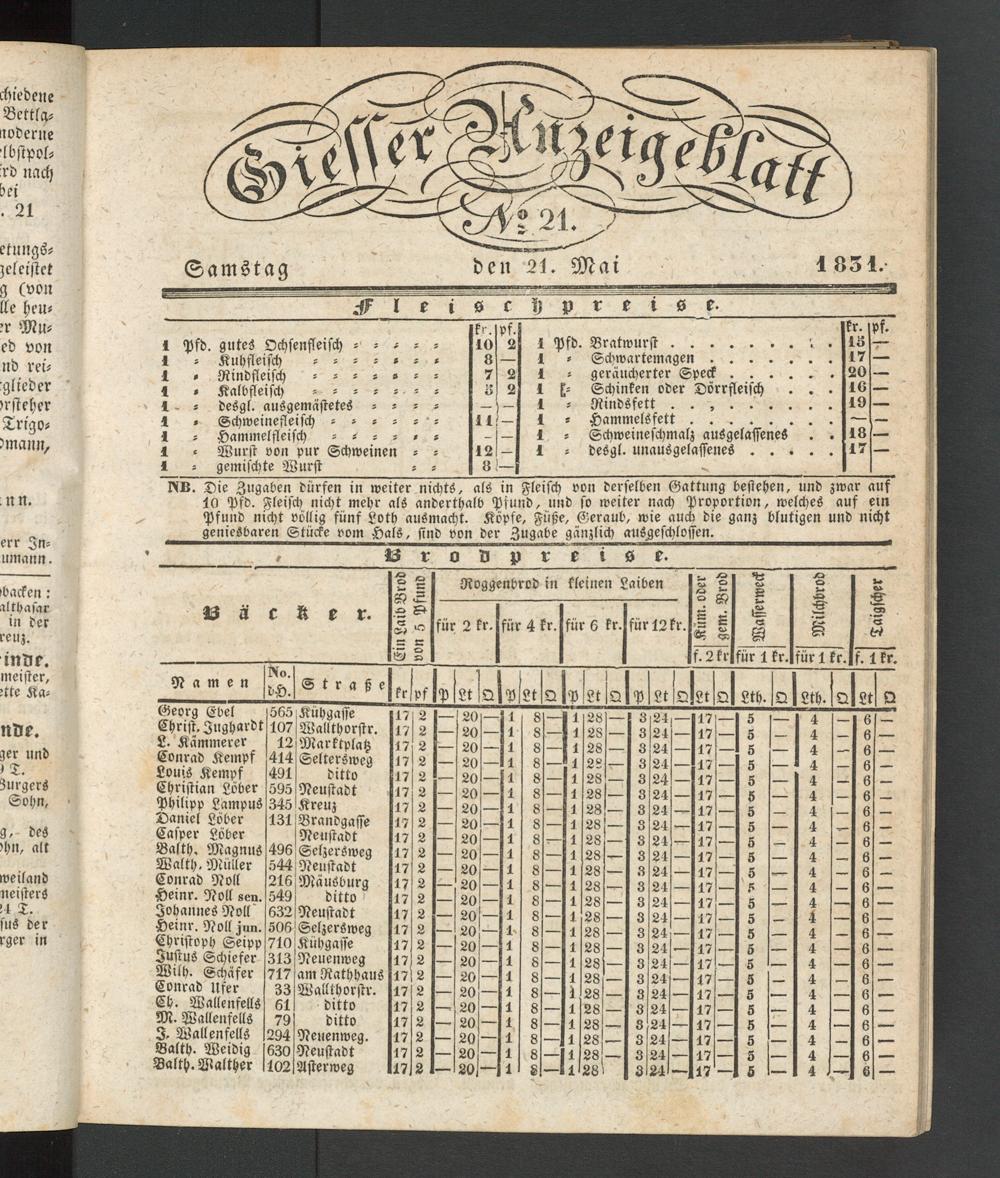 chiedene
Bettla⸗
moderne
elbstpol⸗
ird nach
bei
. 21
etungs⸗
geleistet
g (von
lle heu⸗
er Mu⸗
ied von
nd rei⸗
tglieder
orsteher
Trigo⸗
omann,
nn.
err In⸗
umann.
backen:
althasar
in der
reuz.
inde.
meister,
ette Ka⸗
nde.
ger und
9 T.
Burgers
Sohn,
g, des
ohn, alt
weiland
meisters
24 T.
sus der
rger in
Giesser Anzeigeblatt
No. 21.
Samstag den 21. Mai 1831.
Fleischpreise.
kr. pf. kr. pf.
1 Pfd. gutes Ochsenfleisch 10 2 1 Pfd. Bratwurst 15 —
1 ⸗ Kuhfleisch 8 — 1 ⸗ Schwartemagen 17 —
1 ⸗ Rindfleisch 7 2 1 ⸗ geräucherter Speck 20 —
1 ⸗ Kalbfleisch 5 2 1 ⸗ Schinken oder Dörrfleisch 16 —
1 ⸗ desgl. ausgemästetes — — 1 ⸗ Rindsfett 19 —
1 ⸗ Schweinefleisch 11 — 1 ⸗ Hammelsfett — —
1 ⸗ Hammelfleisch — — 1 ⸗ Schweineschmalz ausgelassenes 18 —
1 ⸗ Wurst von pur Schweinen 12 — 1 ⸗ desgl. unausgelassenes 17 —
1 ⸗ gemischte Wurst 8 —
NB. Die Zugaben dürfen in weiter nichts, als in Fleisch von derselben Gattung bestehen, und zwar auf
10 Pfd. Fleisch nicht mehr als anderthalb Pfund, und so weiter nach Proportion, welches auf ein
Pfund nicht völlig fünf Loth ausmacht. Köpfe, Füße, Geraub, wie auch die ganz blutigen und nicht
geniesbaren Stücke vom Hals, sind von der Zugabe gänzlich ausgeschlossen.
Brodpreise.
Bäcker.
Ein Laib Brod
von 5 Pfund
Roggenbrod in kleinen Laiben
für 2 kr. für 4 kr. für 6 kr. für 12 kr.
Küm. oder
gem. Brod
Wasserweck
Milchbrod
Taigscher
f. 2 kr für 1 kr. für 1 kr. f. 1 kr.
Namen No. d.H. Straße kr pf P Lt Q P Lt Q P Lt Q P Lt Q Lt Q Lth. Q Lth. Q Lt Q
Georg Ebel 565 Kühgasse 17 2 — 20 — 1 8 — 1 28 — 3 24 — 17 — 5 — 4 — 6 —
Christ. Jughardt 107 Wallthorstr. 17 2 — 20 — 1 8 — 1 28 — 3 24 — 17 — 5 — 4 — 6 —
L. Kämmerer 12 Marktplatz 17 2 — 20 — 1 8 — 1 28 — 3 24 — 17 — 5 — 4 — 6 —
Conrad Kempf 414 Seltersweg 17 2 — 20 — 1 8 — 1 28 — 3 24 — 17 — 5 — 4 — 6 —
Louis Kempf 491 ditto 17 2 — 20 — 1 8 — 1 28 — 3 24 — 17 — 5 — 4 — 6 —
Christian Löber 595 Neustadt 17 2 — 20 — 1 8 — 1 28 — 3 24 — 17 — 5 — 4 — 6 —
Philipp Lampus 345 Kreuz 17 2 — 20 — 1 8 — 1 28 — 3 24 — 17 — 5 — 4 — 6 —
Daniel Löber 131 Brandgasse 17 2 — 20 — 1 8 — 1 28 — 3 24 — 17 — 5 — 4 — 6 —
Casper Löber Neustadt 17 2 — 20 — 1 8 — 1 28 — 3 24 — 17 — 5 — 4 — 6 —
Balth. Magnus 496 Selzersweg 17 2 — 20 — 1 8 — 1 28 — 3 24 — 17 — 5 — 4 — 6 —
Walth. Müller 544 Neustadt 17 2 — 20 — 1 8 — 1 28 — 3 24 — 17 — 5 — 4 — 6 —
Conrad Noll 216 Mäusburg 17 2 — 20 — 1 8 — 1 28 — 3 24 — 17 — 5 — 4 — 6 —
Heinr. Noll sen. 549 ditto 17 2 — 20 — 1 8 — 1 28 — 3 24 — 17 — 5 — 4 — 6 —
Johannes Noll 632 Neustadt 17 2 — 20 — 1 8 — 1 28 — 3 24 — 17 — 5 — 4 — 6 —
Heinr. Noll jun. 506 Selzersweg 17 2 — 20 — 1 8 — 1 28 — 3 24 — 17 — 5 — 4 — 6 —
Christoph Seipp 710 Kühgasse 17 2 — 20 — 1 8 — 1 28 — 3 24 — 17 — 5 — 4 — 6 —
Justus Schiefer 313 Neuenweg 17 2 — 20 — 1 8 — 1 28 — 3 24 — 17 — 5 — 4 — 6 —
Wilh. Schäfer 717 am Rathhaus 17 2 — 20 — 1 8 — 1 28 — 3 24 — 17 — 5 — 4 — 6 —
Conrad Ufer 33 Wallthorstr. 17 2 — 20 — 1 8 — 1 28 — 3 24 — 17 — 5 — 4 — 6 —
Ch. Wallenfells 61 ditto 17 2 — 20 — 1 8 — 1 28 — 3 24 — 17 — 5 — 4 — 6 —
M. Wallenfells 79 ditto 17 2 — 20 — 1 8 — 1 28 — 3 24 — 17 — 5 — 4 — 6 —
J. Wallenfells 294 Neuenweg. 17 2 — 20 — 1 8 — 1 28 — 3 24 — 17 — 5 — 4 — 6 —
Balth. Weidig 630 Neustadt 17 2 — 20 — 1 8 — 1 28 — 3 24 — 17 — 5 — 4 — 6 —
Balth. Walther 102 Asterweg 17 2 — 20 — 1 8 — 1 28 3 24 — 17 — 5 — 4 — 6 —